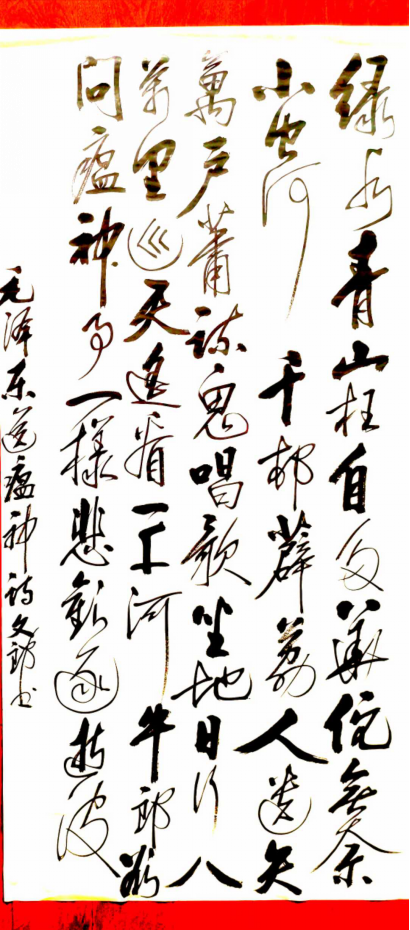 绿水青山枉自多華佗無奈
小虫何千邨薜荔人遗矢
萬户蕭疏鬼唱歌坐地日行八
萬里巡天遥看一千河牛郎欲
問瘟神事一樣悲歡逐逝波
毛泽东送瘟神诗文郎书